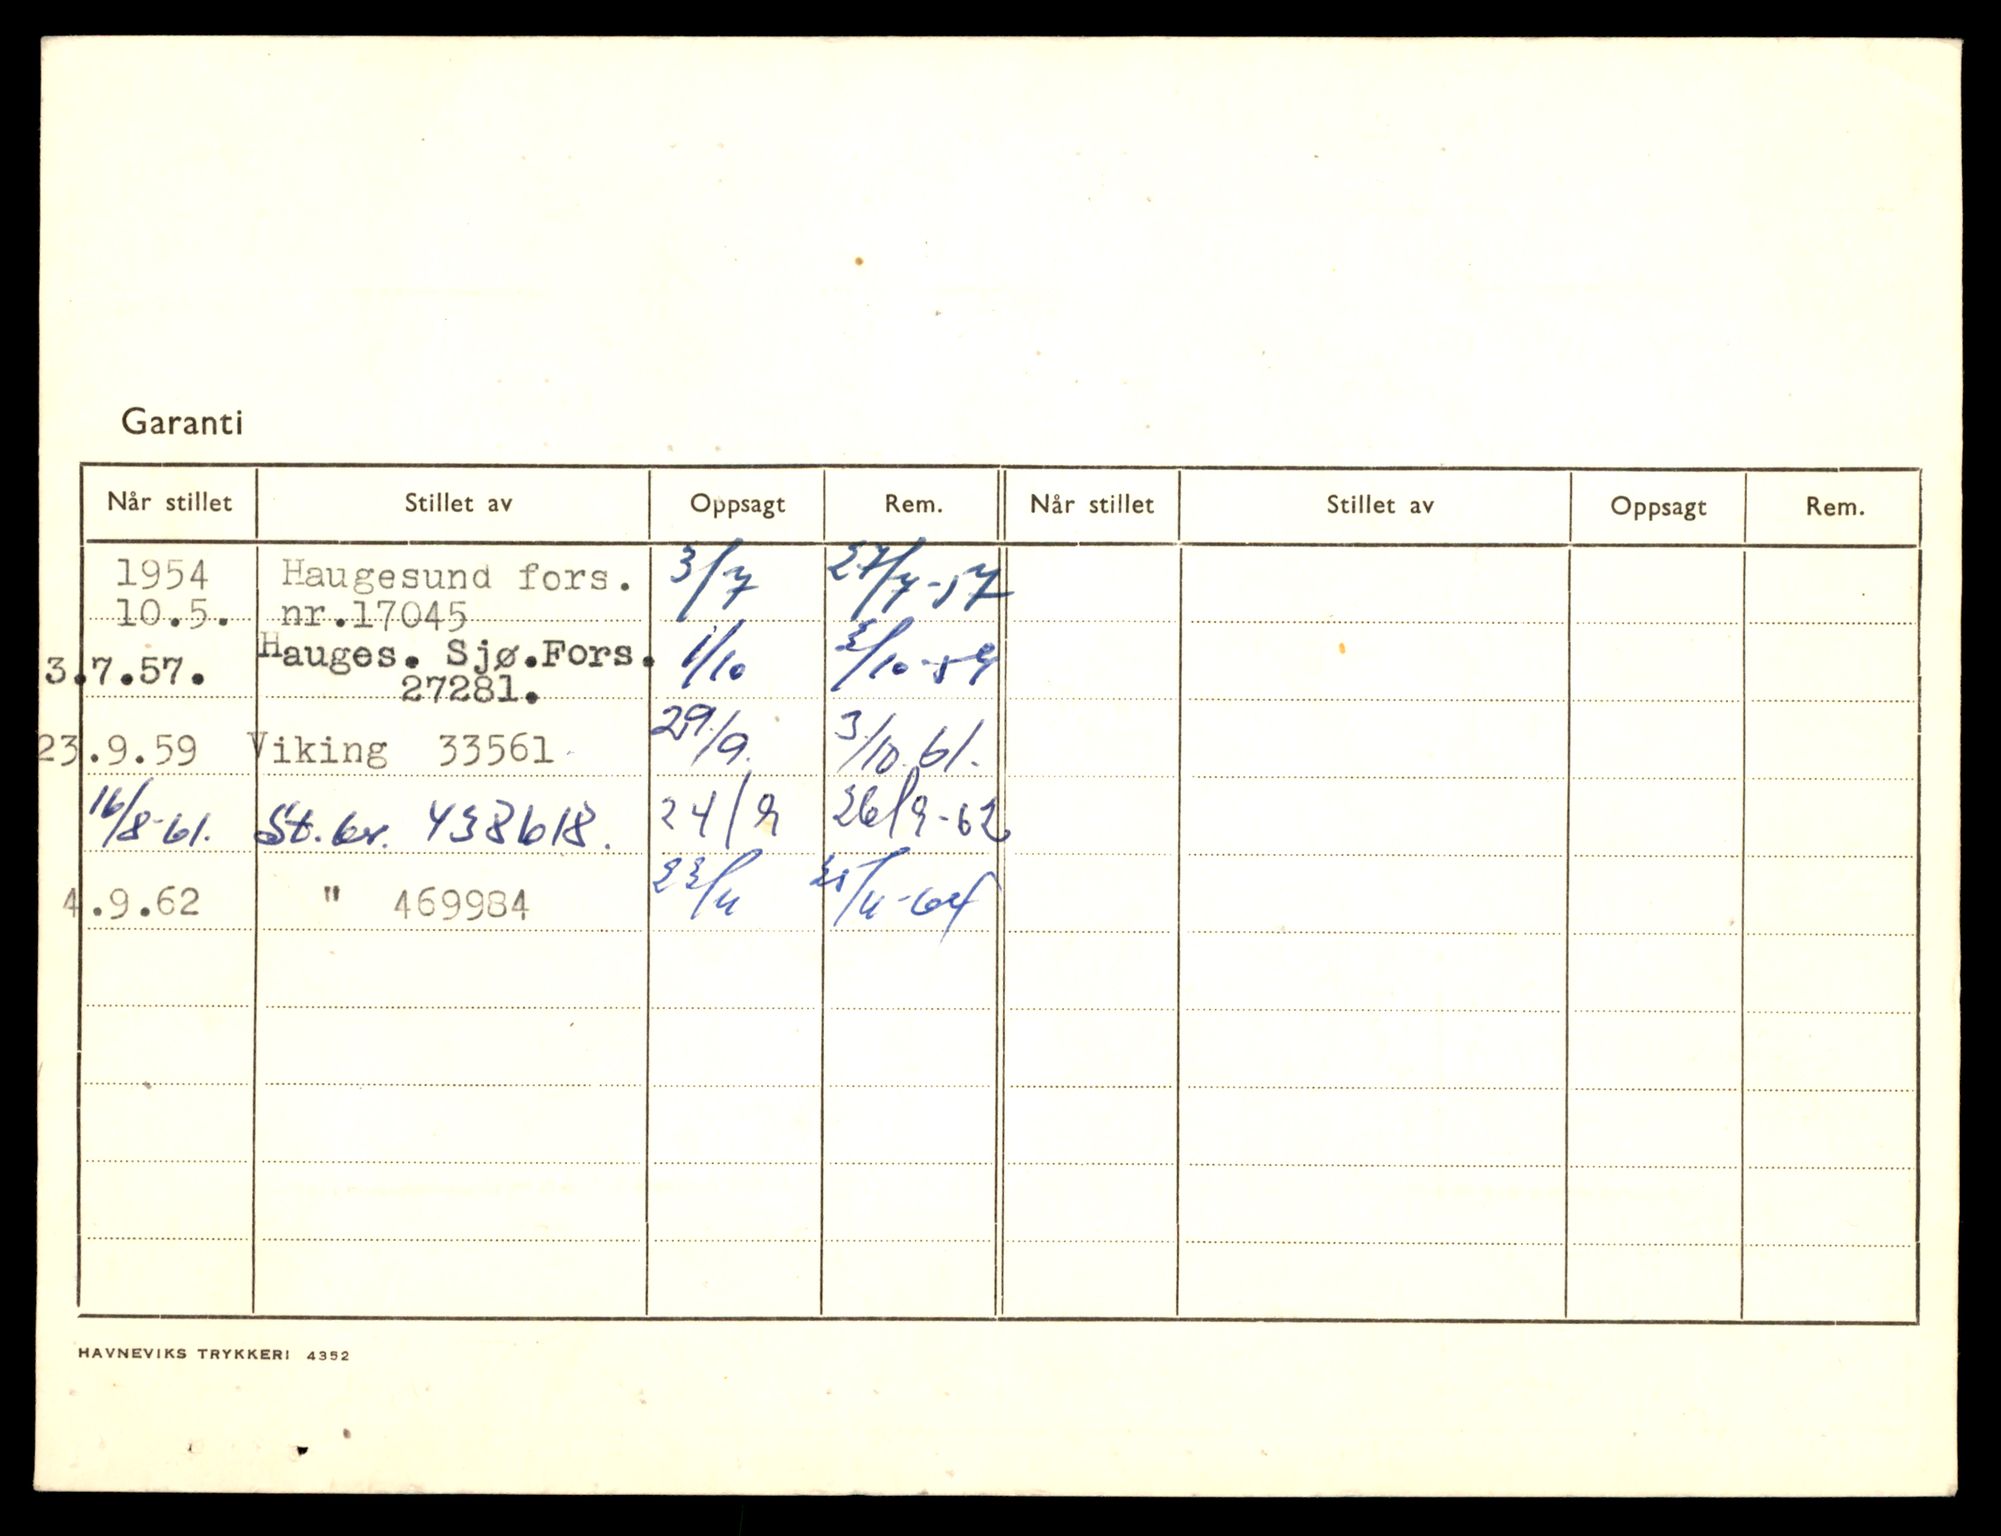 Garanti
Når stillet Stillet av Oppsagt Rem. Når stillet Stillet av Oppsagt Rem.
1954 Haugesund fors. 3/7 27/7-57
10.5. nr.17045
3.7.57. Hauges. Sjø.Fors. 1/10 2/10-59
27281.
23.9.59 Viking 33561 29/9. 3/10.61.
16/8-61. St.br. 438618. 24/9 26/9-62
4.9.62 " 469984 23/4 /4-64
HAVNEVIKS TRYKKERI 4352